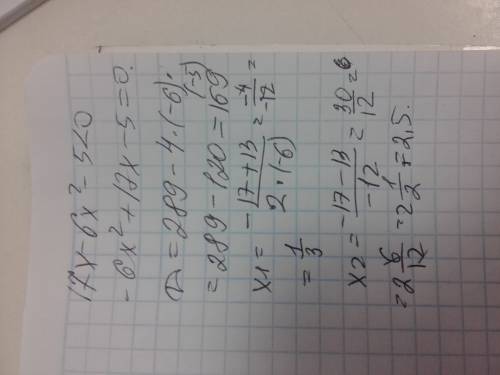 17x-6x²-5<0
-6x²+17x-5=0.
D=289-4·(-6)·(-5)
=289-120=169
x1= -17+13 / 2·(-6) = -4/-12 =
= 1/3
x2= -17-13 / -12 = 30/12 =
=2 6/12 =2 1/2 =2,5.